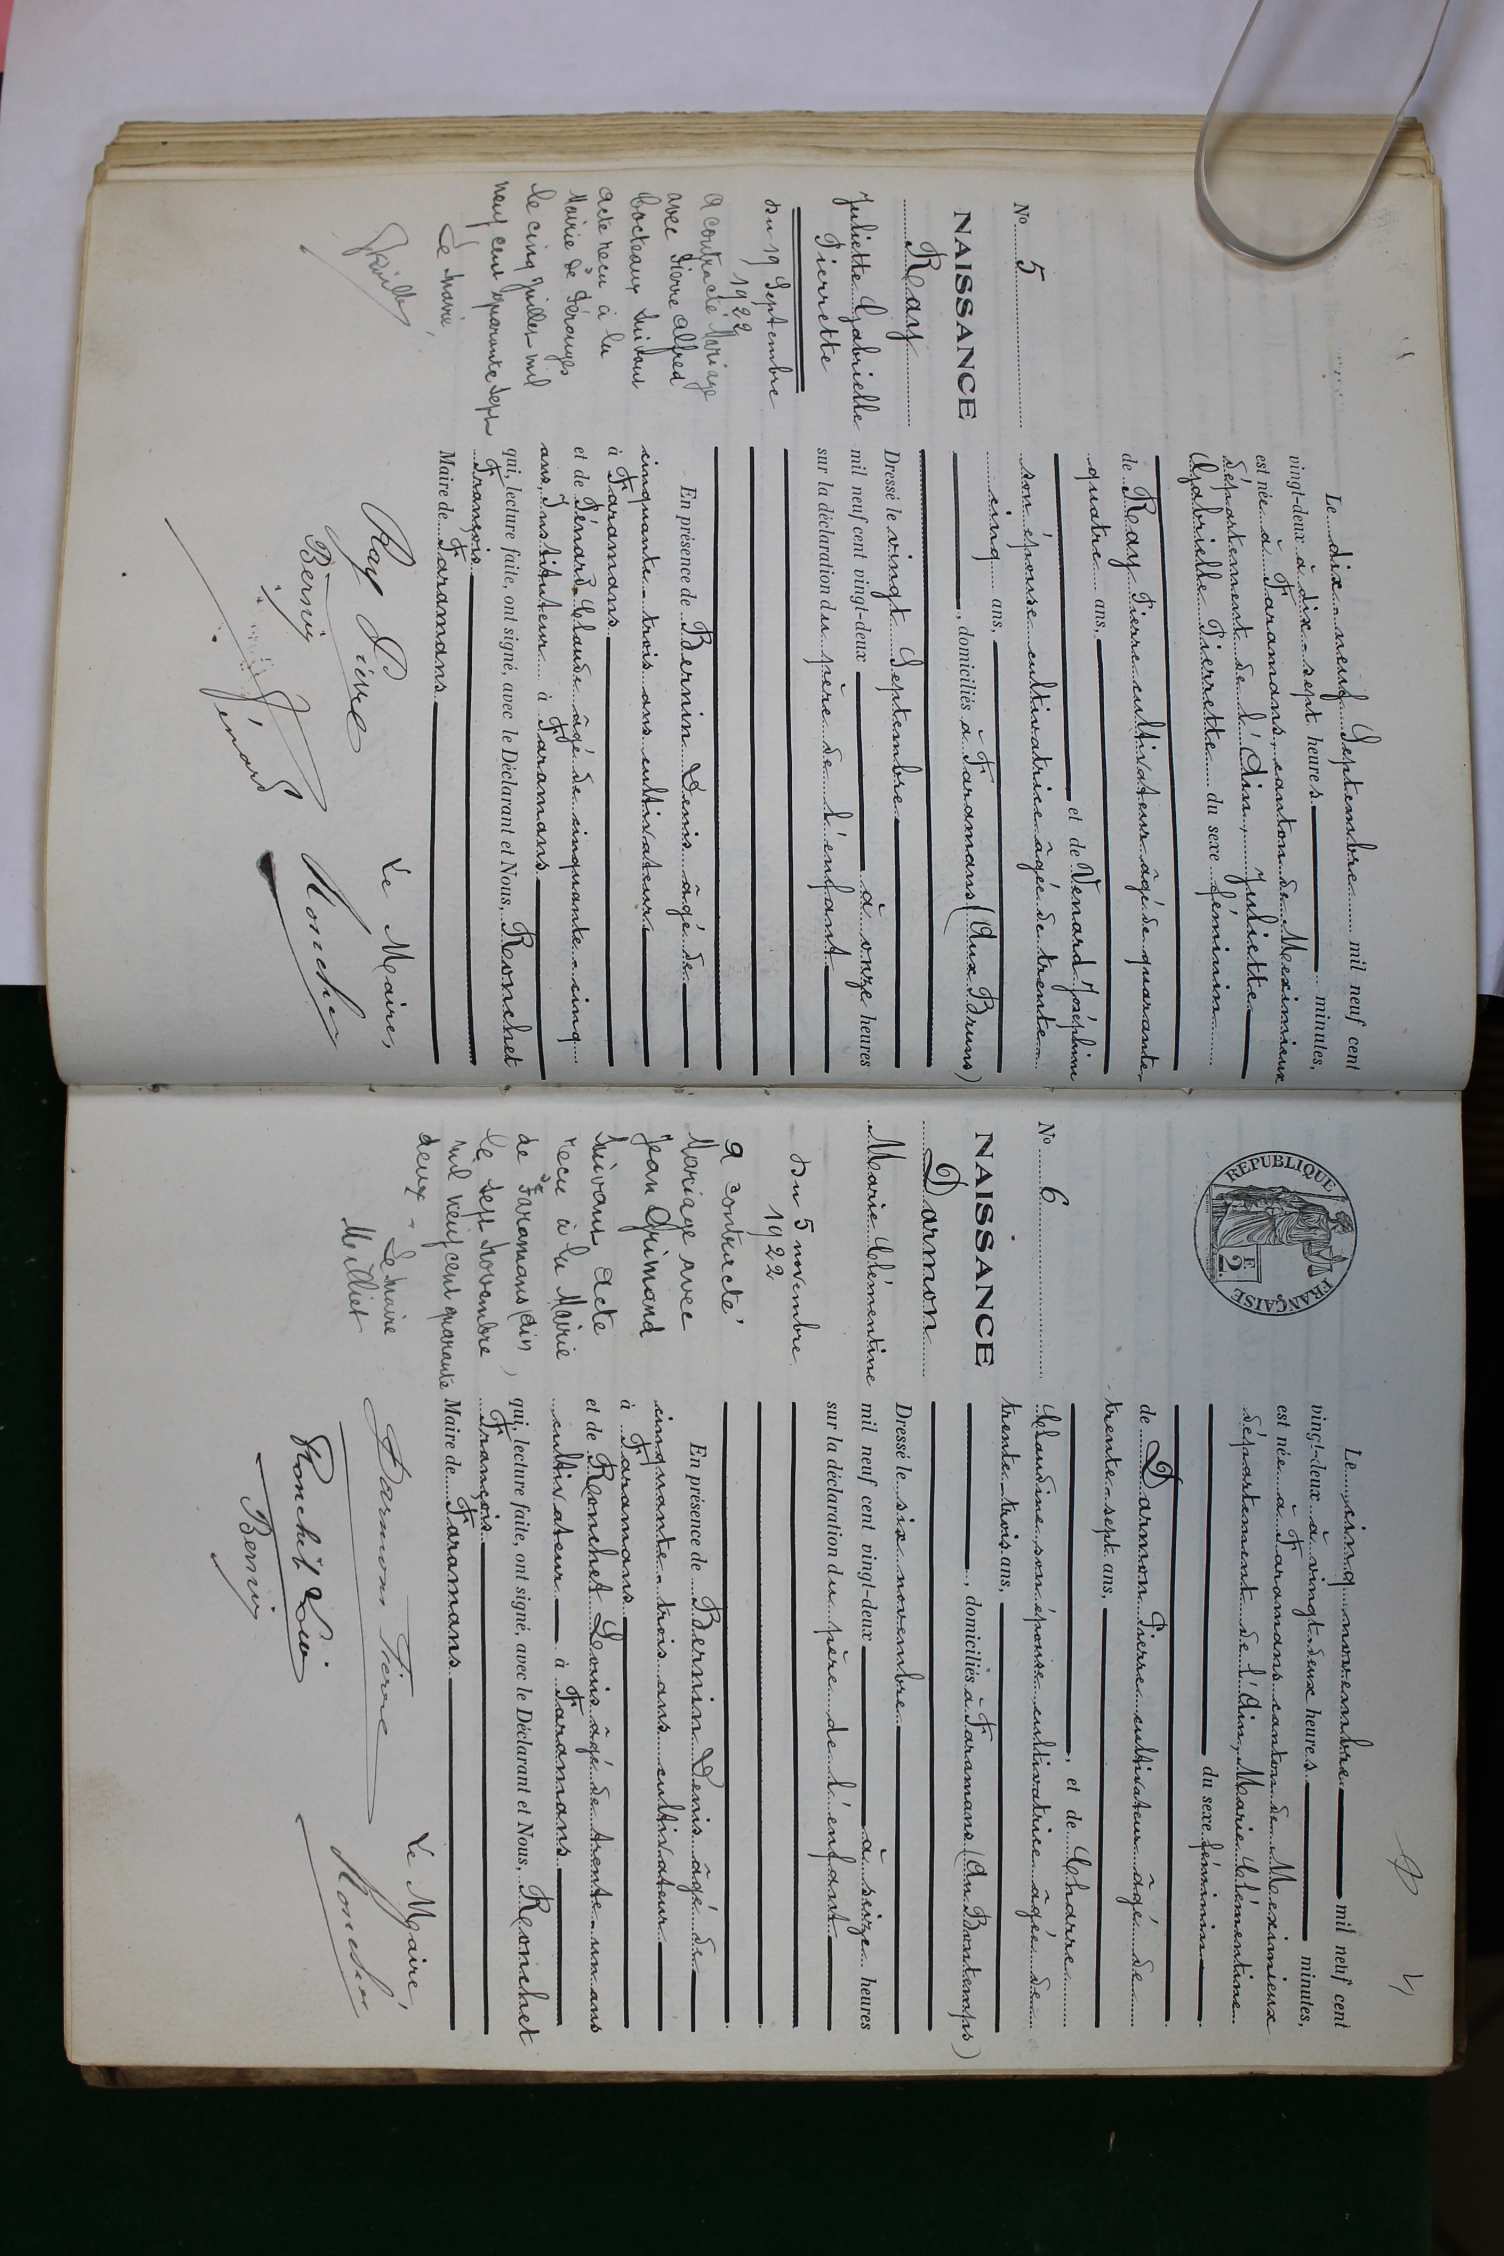 No 5
NAISSANCE
Ray
Juliette Gabrielle
Pierrette
du 19 Septembre
1922
a contracté Mariage
avec Pierre Alfred
Cocteaux Suivant
acte reçu à la
Mairie de Pérouges
le cinq Juillet mil
neuf cent quarante sept
Le Maire,
Le dix-neuf Septembre mil neuf cent
vingt-deux à dix-sept heures minutes,
est née à Faramans, canton de Meximieux
département de l'Ain, Juliette
Gabrielle Pierrette du sexe féminin
de Ray Pierre cultivateur âgé de quarante
quatre ans,
et de Venard Joséphine
son épouse cultivatrice âgée de trente
cinq ans,
, domiciliés à Faramans (Aux Bruns)
Dressé le vingt Septembre
mil neuf cent vingt-deux à onze heures
sur la déclaration du père de l'enfant
En présence de Bernin Denis âgé de
cinquante-trois ans cultivateur
à Faramans
et de Pénard Claude âgé de cinquante-cinq
ans, Instituteur à Faramans
qui, lecture faite, ont signé, avec le Déclarant et Nous, Ronchet
François
Maire de Faramans
Le Maire,
Ray Pierre
Bernin
Pénard
Ronchet
REPUBLIQUE FRANÇAISE
2 F
No 6
NAISSANCE
Darmon
Marie Clémentine
du 5 novembre
1922
a contracté
Mariage avec
Jean Grimand
Suivant acte
reçu à la Mairie
de Faramans (Ain)
le sept novembre
mil neuf cent quarante
deux
Le Maire
Milliet
Le cinq novembre mil neuf cent
vingt-deux à vingt-deux heures minutes,
est née à Faramans canton de Meximieux
département de l'Ain, Marie Clémentine
du sexe féminin
de Darmon Pierre cultivateur âgé de
trente-sept ans,
, et de Charre
Claudine son épouse cultivatrice âgée de
trente-trois ans,
, domiciliés à Faramans (Au Bontemps)
Dressé le six novembre
mil neuf cent vingt-deux à seize heures
sur la déclaration du père de l'enfant
En présence de Bernin Denis âgé de
cinquante-trois ans cultivateur
à Faramans
et de Ronchet Louis âgé de trente-un ans
cultivateur à Faramans
qui, lecture faite, ont signé, avec le Déclarant et Nous, Ronchet
François
Maire de Faramans
Le Maire,
Darmon Pierre
Ronchet Louis
Bernin
Ronchet